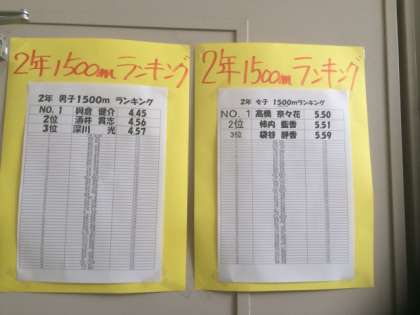 2年1500mランキング
2年 男子1500m ランキング
NO. 1 與倉 健介 4.45
2位 酒井 貫志 4.56
3位 深川 光 4.57
2年1500mランキング
2年 女子 1500mランキング
NO. 1 高橋 奈々花 5.50
2位 柿内 藍香 5.51
3位 袋谷 静香 5.59